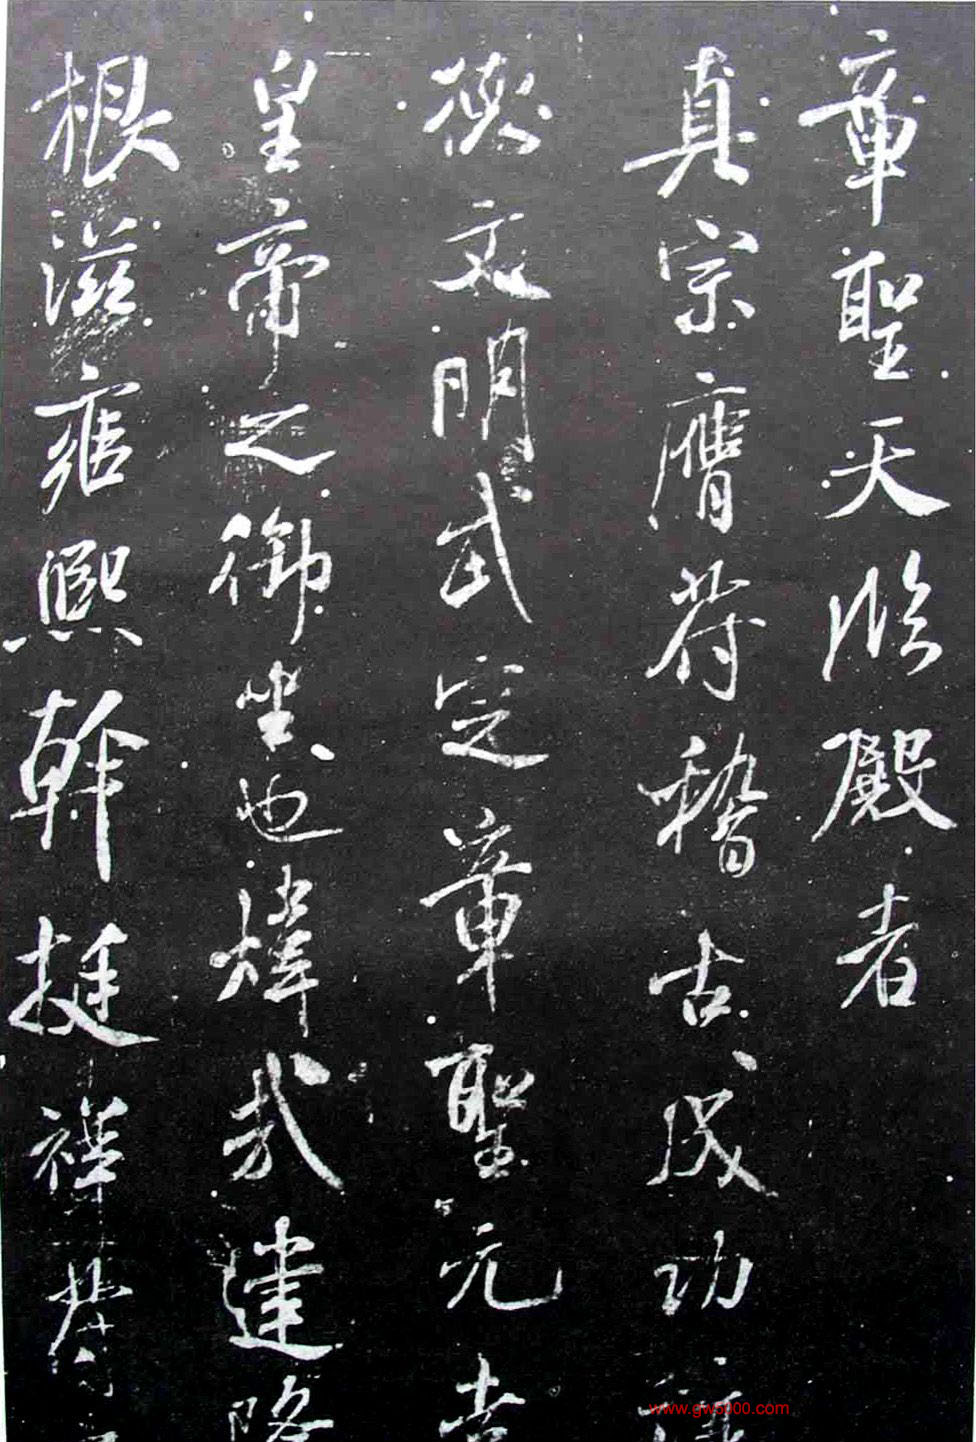 章聖天臨殿者
真宗膺符稽古成功
德文明武定章聖元孝
皇帝之御坐也煒哉建隆
根滋雍熙幹挺祥符
www.gw5000.com